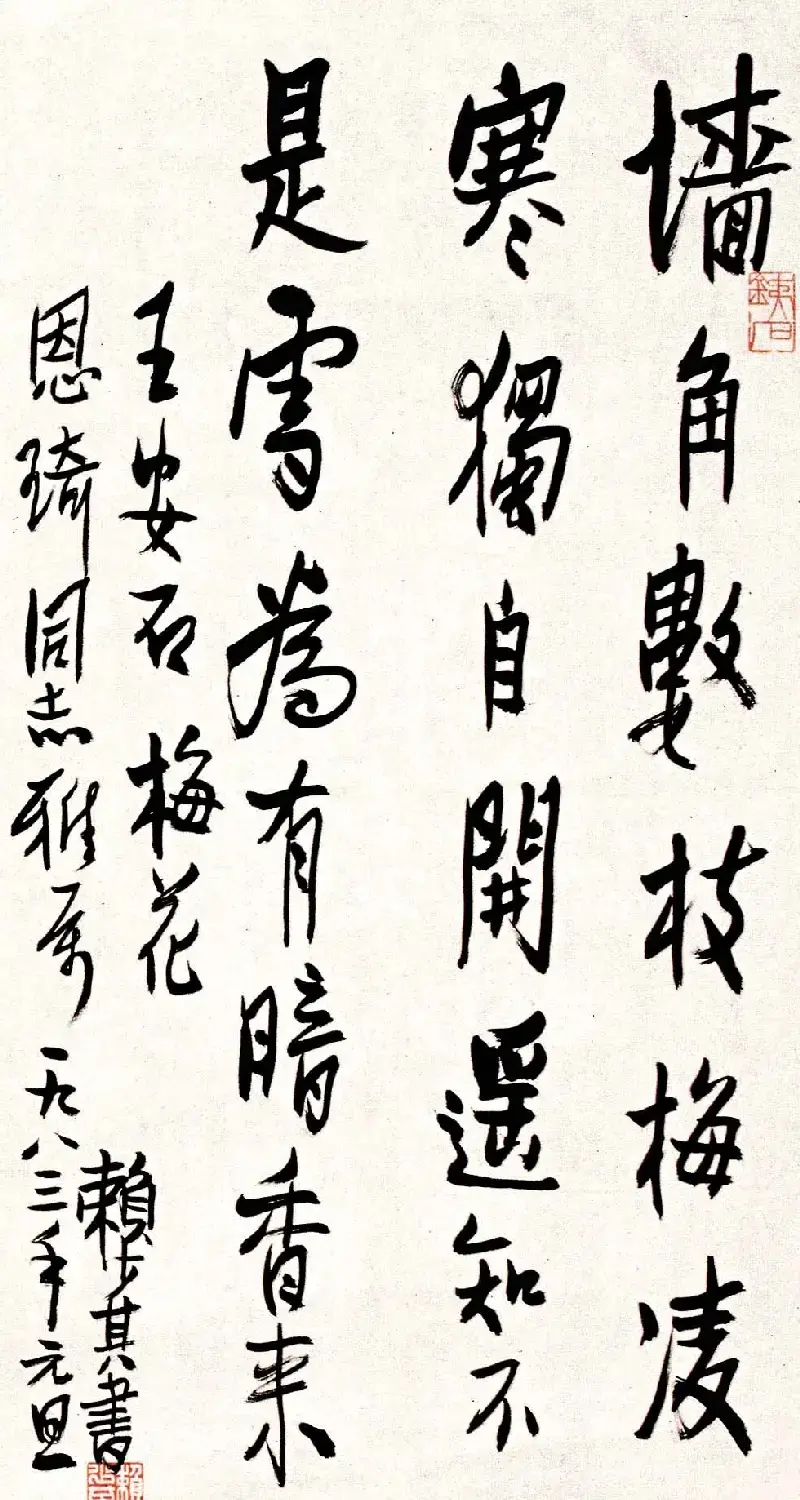 墻角數枝梅凌
寒獨自開遥知不
是雪為有暗香来
王安石梅花
恩琦同志雅属
一九八三年元旦
賴少其書